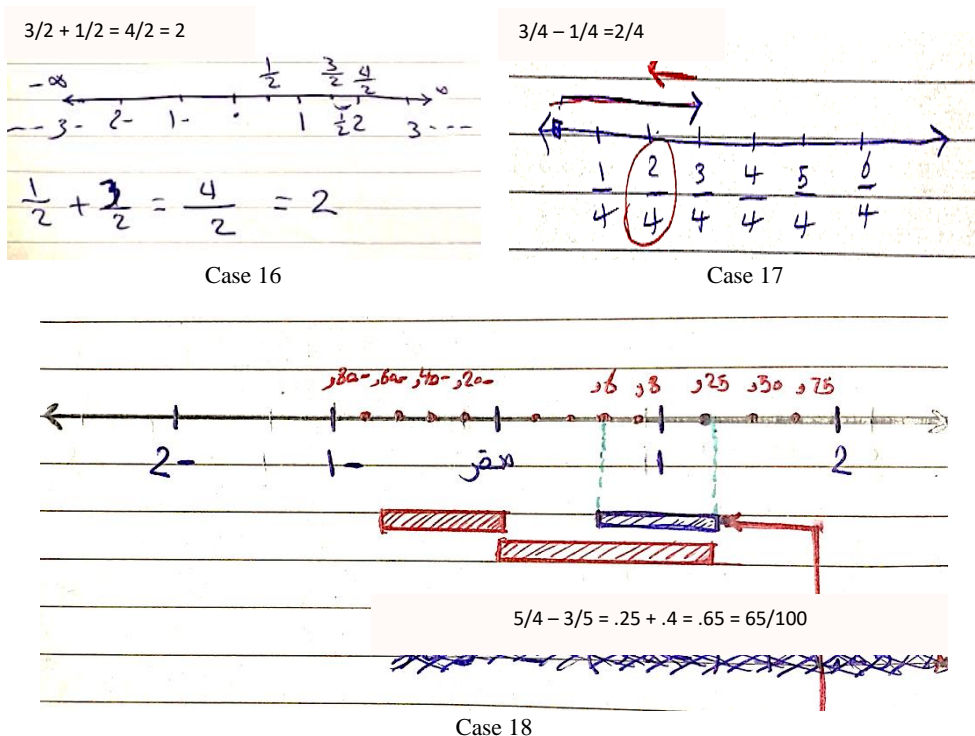 3/2 + 1/2 = 4/2 = 2
-∞ 1/2 3/2 4/2 ∞
---3- 2- 1- . 1 1/2 2 3---
1/2 + 3/2 = 4/2 = 2
Case 16
3/4 – 1/4 =2/4
1/4 2/4 3/4 4/4 5/4 6/4
Case 17
,80- ,60- ,40- ,20- ,6 ,8 ,25 ,50 ,75
2- 1- صفر 1 2
5/4 – 3/5 = .25 + .4 = .65 = 65/100
Case 18